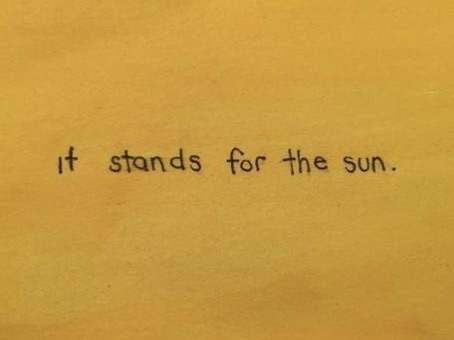 it stands for the sun.